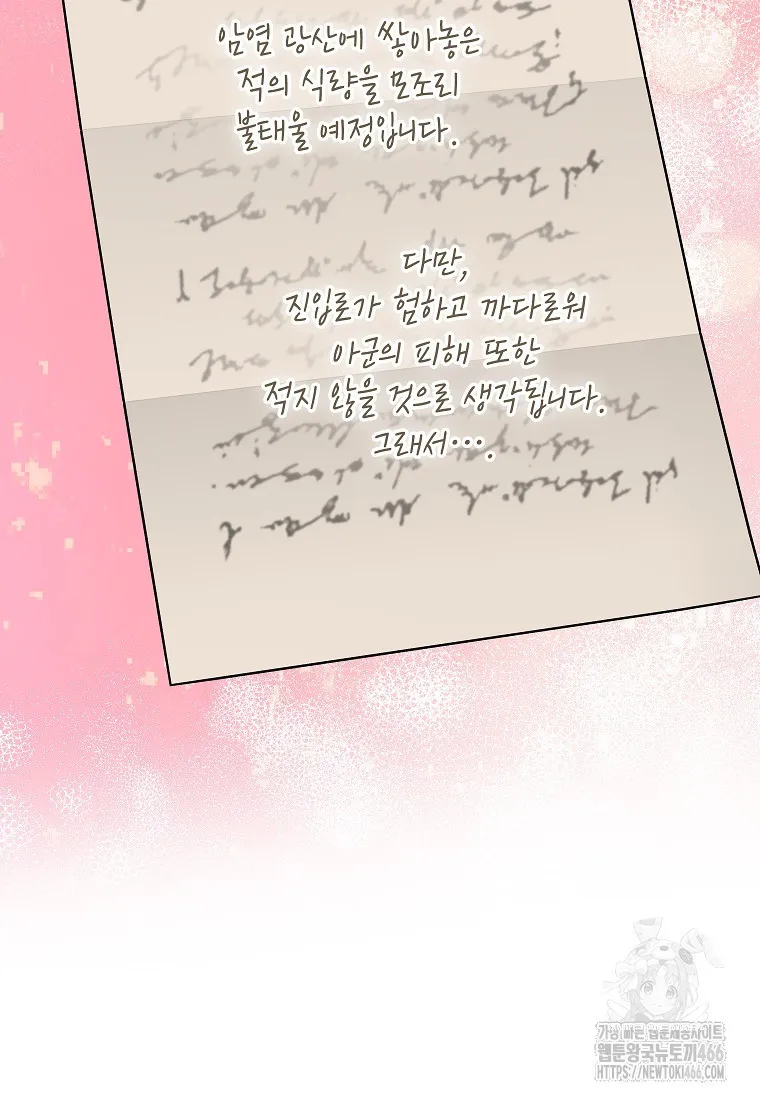 암염 광산에 쌓아놓은
적의 식량을 모조리
불태울 예정입니다.
다만,
진입로가 험하고 까다로워
아군의 피해 또한
적지 않을 것으로 생각됩니다.
그래서….
가장 빠른 웹툰제공사이트
웹툰왕국뉴토끼466
HTTPS://NEWTOKI466.COM